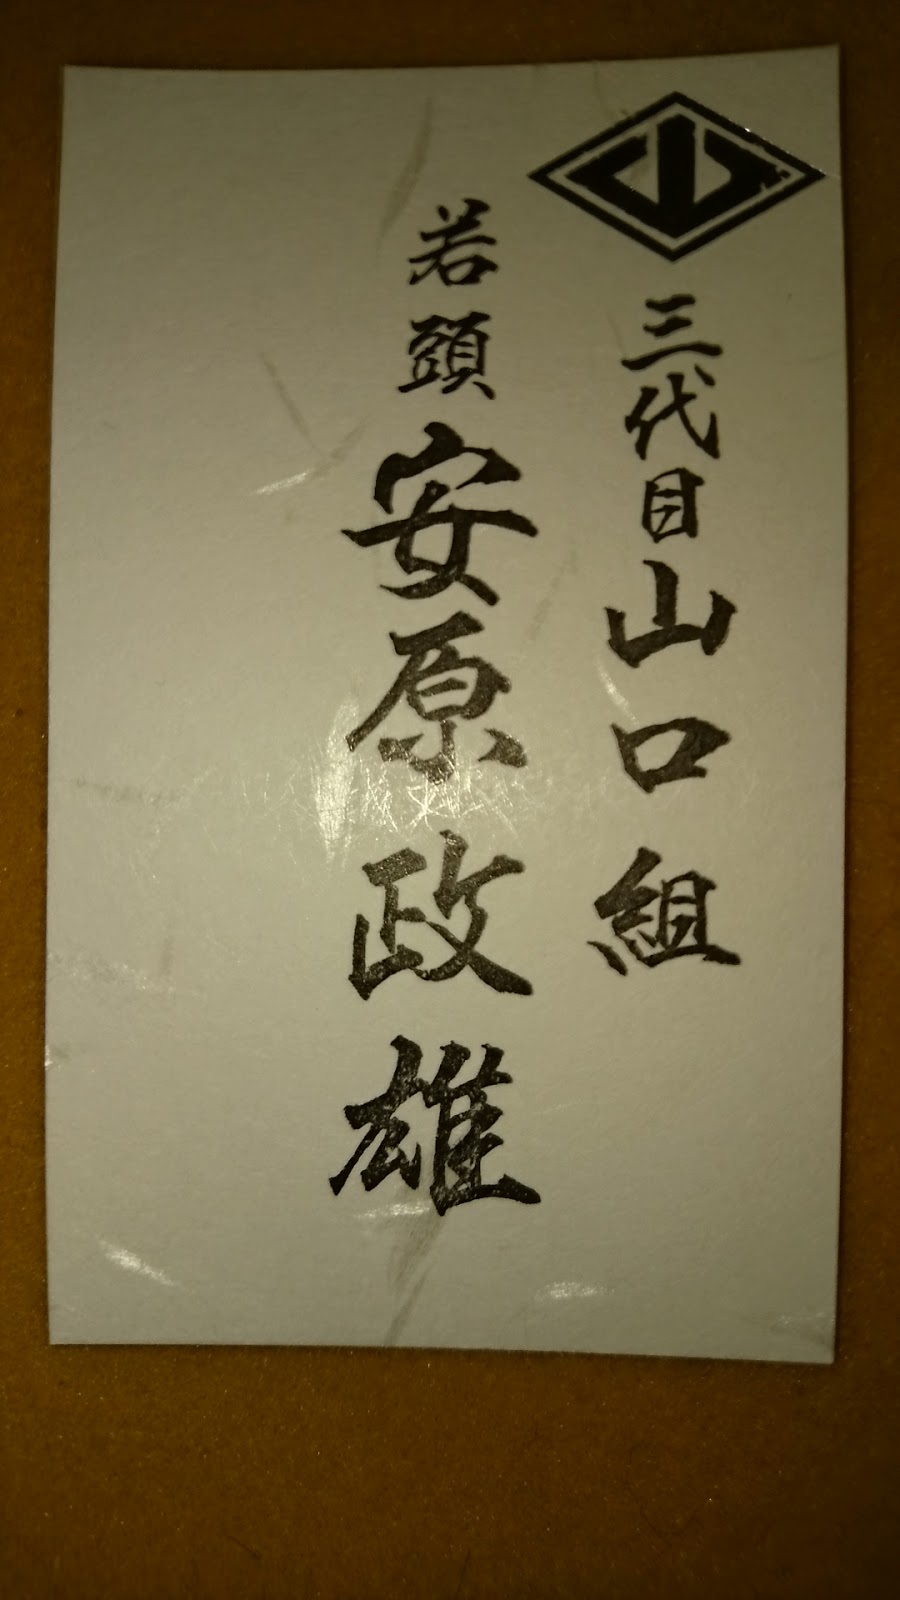 三代目山口組
若頭 安原政雄